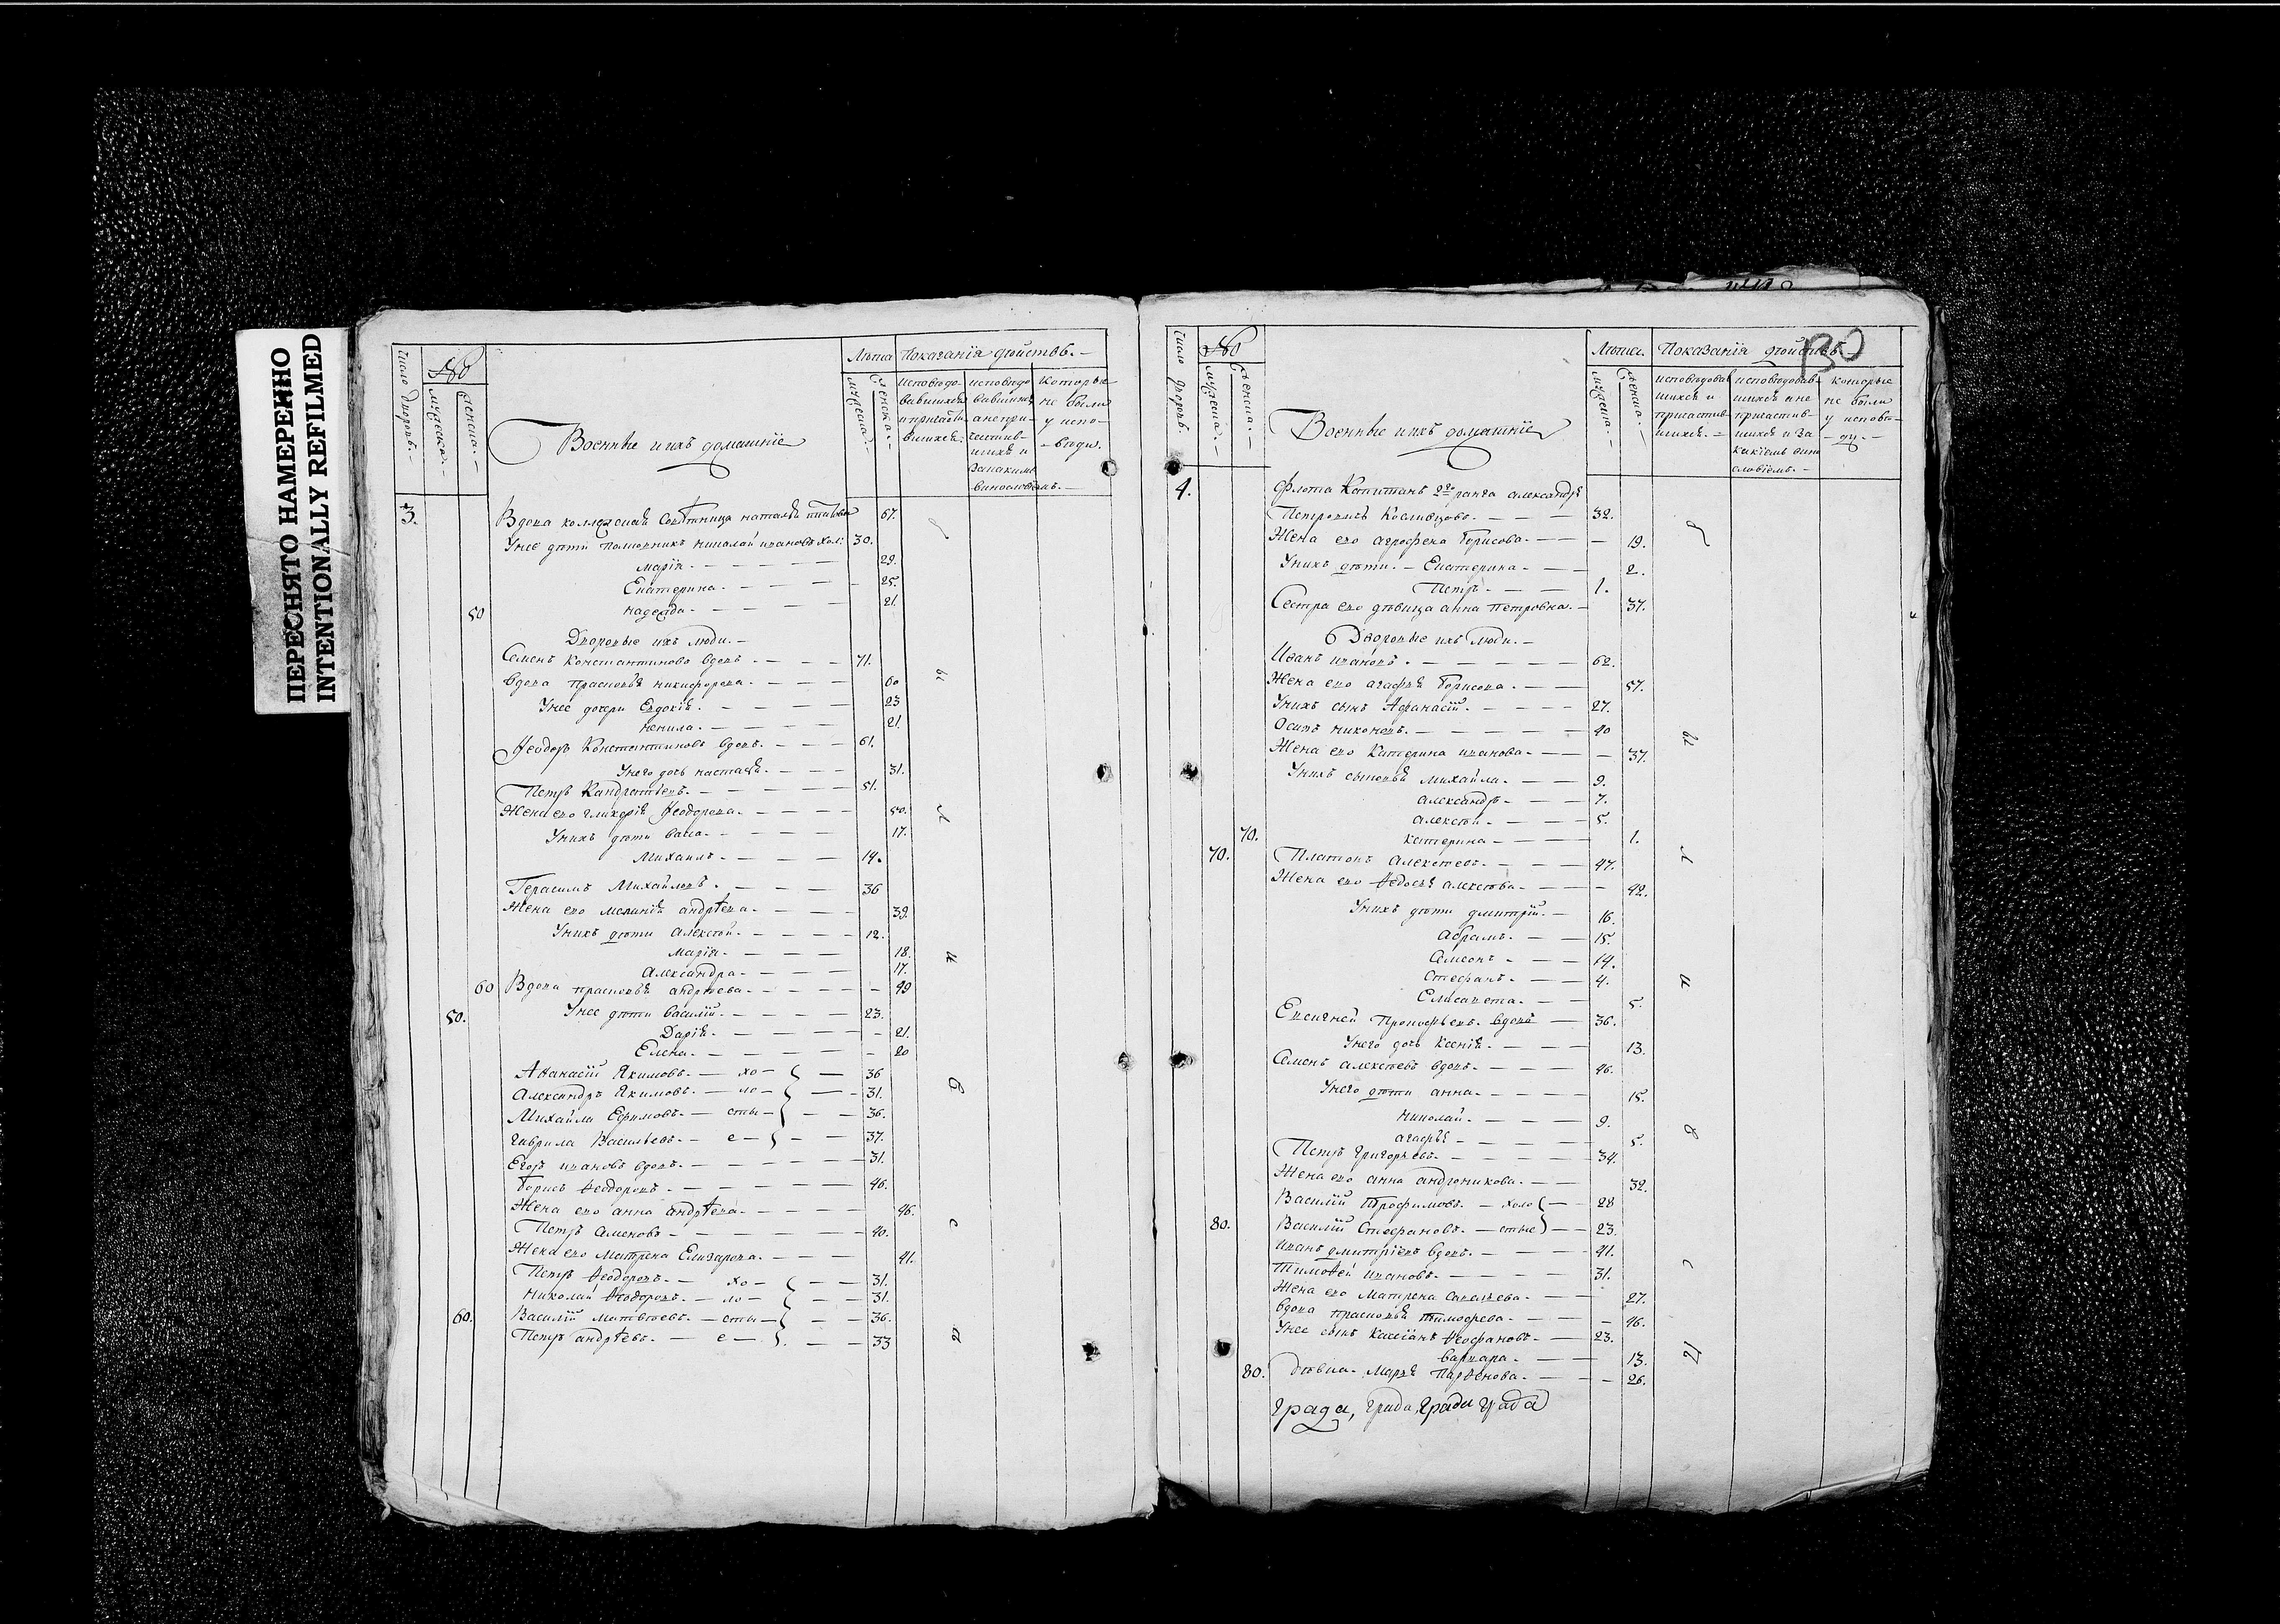 ПЕРЕСНЯТО НАМЕРЕННО
INTENTIONALLY REFILMED
Число дворовъ.
Мужеска.
Женска.
Военные и ихъ домашніе
Лѣта
Показанія дѣйствъ.
Мужеска
Женска
исповѣдо-
вавшихся
и причасти-
вшихся.
исповѣдо
вавшихся
а не при-
частив-
шихся и
за какимъ
винословіемъ.
которые
не были
у испо-
вѣди.
3.
Вдова коллежская Совѣтница наталья 67.
У нее дѣти полковникъ николай ивановъ хол: 30.
марія. 29.
Екатерина. 25.
50 надежда. 21.
Дворовые ихъ люди.
Семенъ Константиновъ вдовъ. 71.
Вдова прасковья никифорова. 60
У нее дочери Евдокія. 23
ненила. 21.
Ѳеодоръ Константиновъ вдовъ. 61.
У него дочь настасья. 31.
Петръ Кандратьевъ. 51.
Жена его гликерія Ѳеодорова. 50.
У нихъ дѣти васса. 17.
Михаилъ. 14.
Герасимъ Михайловъ. 36
Жена его меланія андрѣева. 39.
У нихъ дѣти Алексѣй. 12.
марія. 18.
Александра. 17.
60 Вдова прасковья андрѣева. 49
50. У нее дѣти василій. 23.
Дарія. 21.
Елена. 20
Аѳанасій Якимовъ. хо 36
Александръ Якимовъ. ло 31.
Михайла Ефимовъ. сты 36.
гаврила Васильевъ. е 37.
Егоръ ивановъ вдовъ. 31.
Борисъ Ѳеодоровъ. 46.
Жена его анна андрѣева. 46.
Петръ Семеновъ 40.
Жена его матрена Елизарова. 41.
Петръ Ѳеодоровъ. хо 31.
николай Ѳеодоровъ. ло 31.
60. Василій матвѣевъ. сты 36.
Петръ андрѣевъ. е 33
130
Число дворовъ.
Мужеска.
Женска.
Военные и ихъ домашніе
Лѣта.
Показанія дѣйствъ
Мужеска.
Женска.
исповѣдовав
шихся и
причастив-
шихся.
исповѣдовав-
шихся а не
причастив-
шихся и за
какимъ вино
словіемъ.
которые
не были
у исповѣ-
ди.
4.
Флота Капитанъ 2го ранга александръ
Петровичь 32.
Жена его агрофена борисова. 19.
У нихъ дѣти. Екатерина. 2.
Петръ. 1.
Сестра его дѣвица анна петровна. 37.
Дворовые ихъ люди.
Иванъ ивановъ. 62.
Жена его агафья борисова. 57.
У нихъ сынъ Афанасій. 27.
Осипъ никоновъ. 40
Жена его Катерина иванова. 37.
У нихъ сыновья михайла. 9.
александръ. 7.
алексѣй. 5.
70. катерина 1.
70. Платонъ алексѣевъ. 47.
Жена его Ѳедосья алексѣева. 42.
У нихъ дѣти дмитрій. 16.
абрамъ. 15.
Симеонъ 14.
Стефанъ. 4.
Елисавета. 5.
Евсигней Прокофьевъ. вдовъ 36.
У него дочь ксенія. 13.
Семенъ алексѣевъ вдовъ. 46.
У него дѣти анна. 15.
николай. 9.
агафья 5.
Петръ Григорьевъ. 34.
Жена его анна андроникова. 32.
Василій Трофимовъ. холо 28
80. Василій Стефановъ. стые 23.
Иванъ дмитріевъ вдовъ. 41.
Тимоѳей ивановъ. 31.
Жена его Матрена Савельева. 27.
вдова прасковья тимофеева. 46.
У нее сынъ Кассіанъ Ѳеофановъ. 23.
варвара. 13.
80. дѣвка. Марья Парѳенова. 26.
града, града, гради града